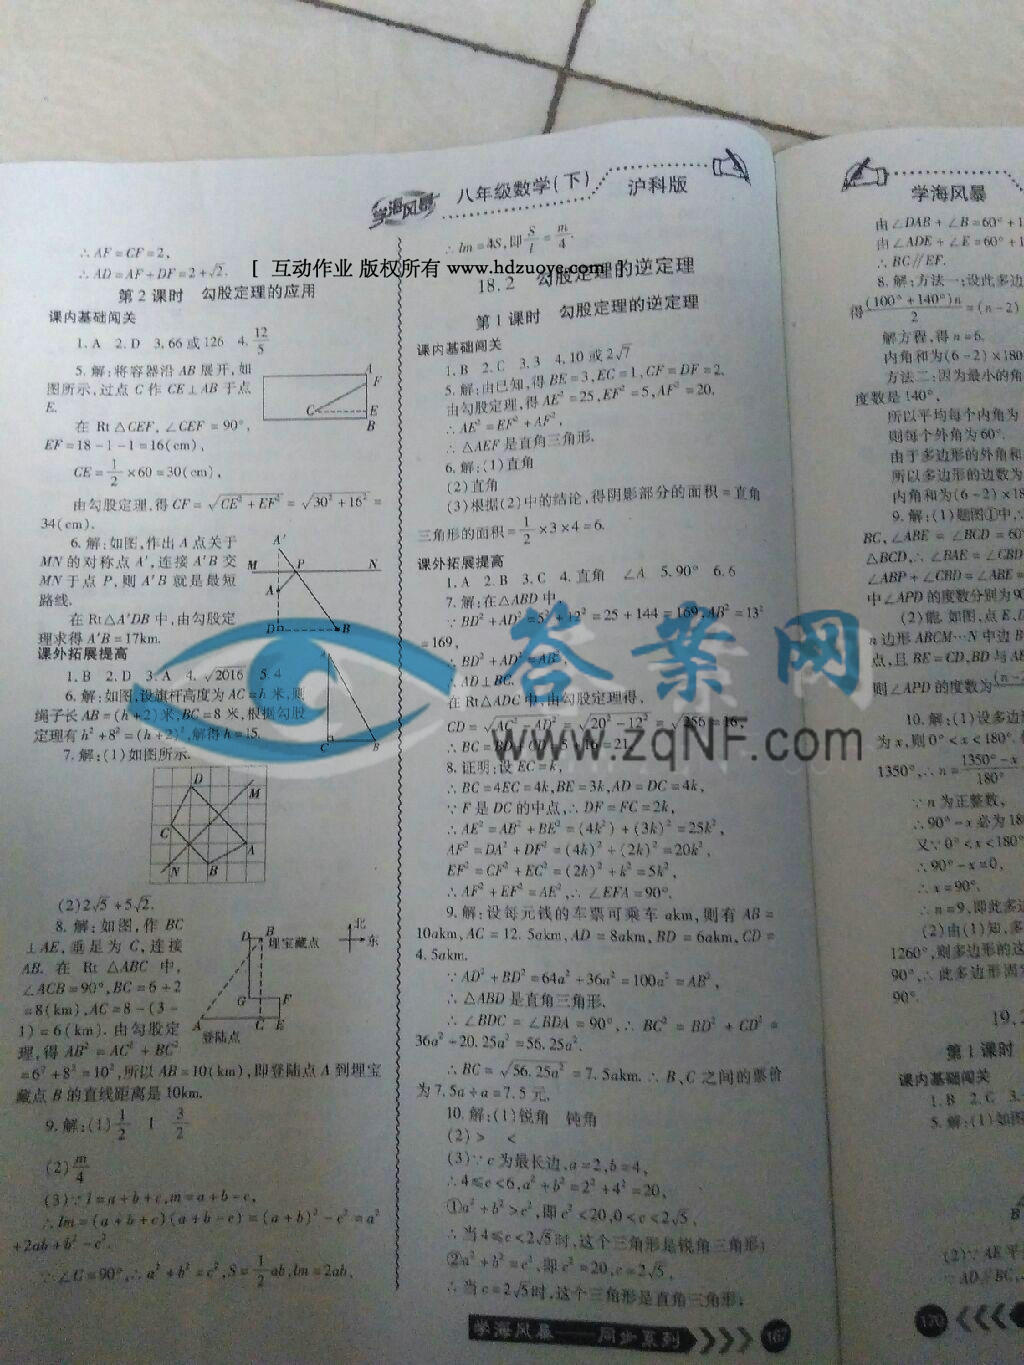 学海风暴 八年级数学(下) 沪科版
[ 互动作业 版权所有 www.hdzuoye.com ]
∴AF=CF=2,
∴AD=AF+DF=2+√2.
第2课时 勾股定理的应用
课内基础闯关
1. A 2. D 3. 66或126 4. 12/5
5. 解:将容器沿AB展开,如
图所示,过点C作CE⊥AB于点
E.
在Rt△CEF,∠CEF=90°,
EF=18-1-1=16(cm),
CE=1/2×60=30(cm),
由勾股定理,得CF=√(CE²+EF²)=√(30²+16²)=
34(cm).
F
C
E
B
6. 解:如图,作出A点关于
MN的对称点A′,连接A′B交
MN于点P,则A′B就是最短
路线.
在Rt△A′DB中,由勾股定
理求得A′B=17km.
A′
M
P
N
A
D
B
课外拓展提高
1. B 2. D 3. A 4. √2016 5. 4
6. 解:如图,设旗杆高度为AC=h米,则
绳子长AB=(h+2)米,BC=8米,根据勾股
定理有h²+8²=(h+2)²,解得h=15.
7. 解:(1)如图所示.
C
B
D
M
C
A
N
B
(2)2√5+5√2.
8. 解:如图,作BC
⊥AE,垂足为C,连接
AB. 在Rt△ABC中,
∠ACB=90°,BC=6+2
=8(km),AC=8-(3-
1)=6(km). 由勾股定
理,得AB²=AC²+BC²
=6²+8²=10²,所以AB=10(km),即登陆点A到埋宝
藏点B的直线距离是10km.
北
东
D
B
埋宝藏点
G
F
A
C
E
登陆点
9. 解:(1)1/2 1 3/2
(2)m/4
(3)∵l=a+b+c,m=a+b-c,
∴lm=(a+b+c)(a+b-c)=(a+b)²-c²=a²
+2ab+b²-c².
∵∠C=90°,∴a²+b²=c²,S=1/2ab,lm=2ab,
∴lm=4S,即S/l=m/4.
18.2 勾股定理的逆定理
第1课时 勾股定理的逆定理
课内基础闯关
1. B 2. C 3. 3 4. 10或2√7
5. 解:由已知,得BE=3,EC=1,CF=DF=2.
由勾股定理,得AE²=25,EF²=5,AF²=20.
∴AE²=EF²+AF²,
∴△AEF是直角三角形.
6. 解:(1)直角
(2)直角
(3)根据(2)中的结论,得阴影部分的面积=直角
三角形的面积=1/2×3×4=6.
课外拓展提高
1. A 2. B 3. C 4. 直角 ∠A 5. 90° 6. 6
7. 解:在△ABD中,
∵BD²+AD²=5²+12²=25+144=169,AB²=13²
=169,
∴BD²+AD²=AB²,
∴AD⊥BC.
在Rt△ADC中,由勾股定理得,
CD=√(AC²-AD²)=√(20²-12²)=√256=16,
∴BC=BD+CD=5+16=21.
8. 证明:设EC=k,
∴BC=4EC=4k,BE=3k,AD=DC=4k,
∵F是DC的中点,∴DF=FC=2k,
∴AE²=AB²+BE²=(4k²)+(3k)²=25k²,
AF²=DA²+DF²=(4k)²+(2k)²=20k²,
EF²=CF²+EC²=(2k)²+k²=5k²,
∴AF²+EF²=AE²,∴∠EFA=90°.
9. 解:设每元钱的车票可乘车akm,则有AB=
10akm,AC=12.5akm,AD=8akm,BD=6akm,CD=
4.5akm.
∵AD²+BD²=64a²+36a²=100a²=AB²,
∴△ABD是直角三角形.
∴∠BDC=∠BDA=90°,∴BC²=BD²+CD²=
36a²+20.25a²=56.25a².
∴BC=√56.25a²=7.5akm. ∴B、C之间的票价
为7.5a÷a=7.5元.
10. 解:(1)锐角 钝角
(2)> <
(3)∵c为最长边,a=2,b=4,
∴4≤c<6,a²+b²=2²+4²=20,
①a²+b²>c²,即c²<20,0<c<2√5,
∴当4≤c<2√5时,这个三角形是锐角三角形;
②a²+b²=c²,即c²=20,c=2√5,
∴当c=2√5时,这个三角形是直角三角形;
学海风暴——同步系列 167
答案网
www.zqNF.com
学海风暴
由∠DAB+∠B=60°+1
由∠ADE+∠E=60°+1
∴BC∥EF.
8. 解:方法一:设此多边
得(100°+140°)n/2=(n-2)
解方程,得n=6.
内角和为(6-2)×180
方法二:因为最小的角
度数是140°,
所以平均每个内角为
则每个外角为60°.
由于多边形的外角和
所以多边形的边数为
内角和为(6-2)×18
9. 解:(1)题图①中∴
BC,∠ABE=∠BCD=60°
△BCD,∴∠BAE=∠CBD
∠ABP+∠CBD=∠ABE=
中∠APD的度数分别为90
(2)能. 如图,点E、D
n边形ABCM…N中边B
点,且BE=CD,BD与AE
则∠APD的度数为(n-2
10. 解:(1)设多边形
为x,则0°<x<180°.
1350°,∴n=1350°-x/180°
∵n为正整数,
∴90°-x必为180
又∵0°<x<180°
∴90°-x=0,
∴x=90°.
∴n=9,即此多边
(2)由(1)知,多
1260°,则多边形的这
90°,∴此多边形固定
90°.
19.2
第1课时
课内基础闯关
1. B 2. C 3.
5. 解:(1)如图
B
(2)∵AE平
∴AD∥BC,
170